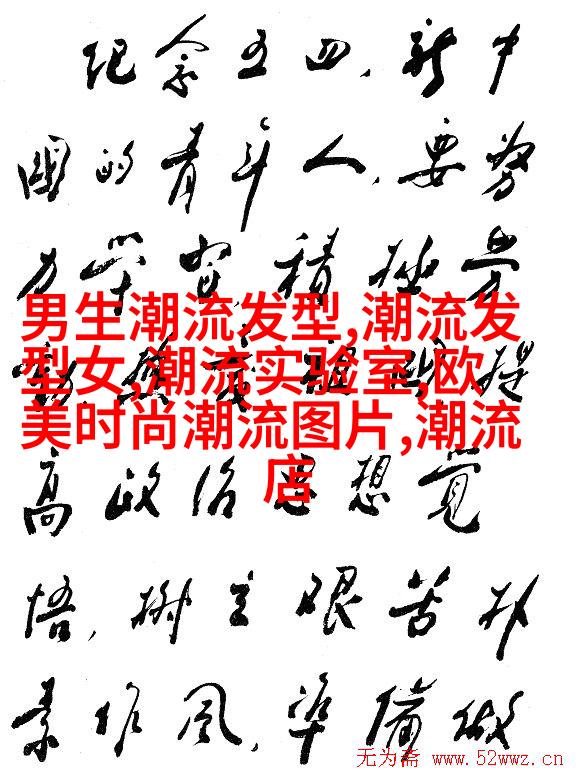 纪念五四,新中
國的青年人,要努
力学 積极劳
男生潮流发型,潮流发
型女,潮流实验室,欧
美时尚潮流图片,潮流
店
提
高政治思想觉
悟,树立艰苦朴
素作风,准備做
无为斋 www.52wwz.cn